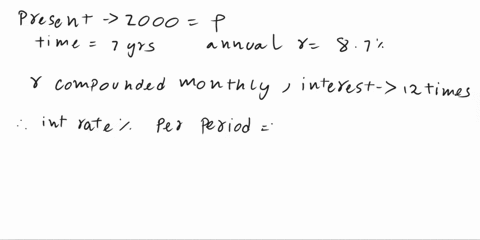 Present -> 2000 = P
time = 7 yrs annual r = 8.7%
r compounded monthly, interest -> 12 times
∴ int rate % Per Period =